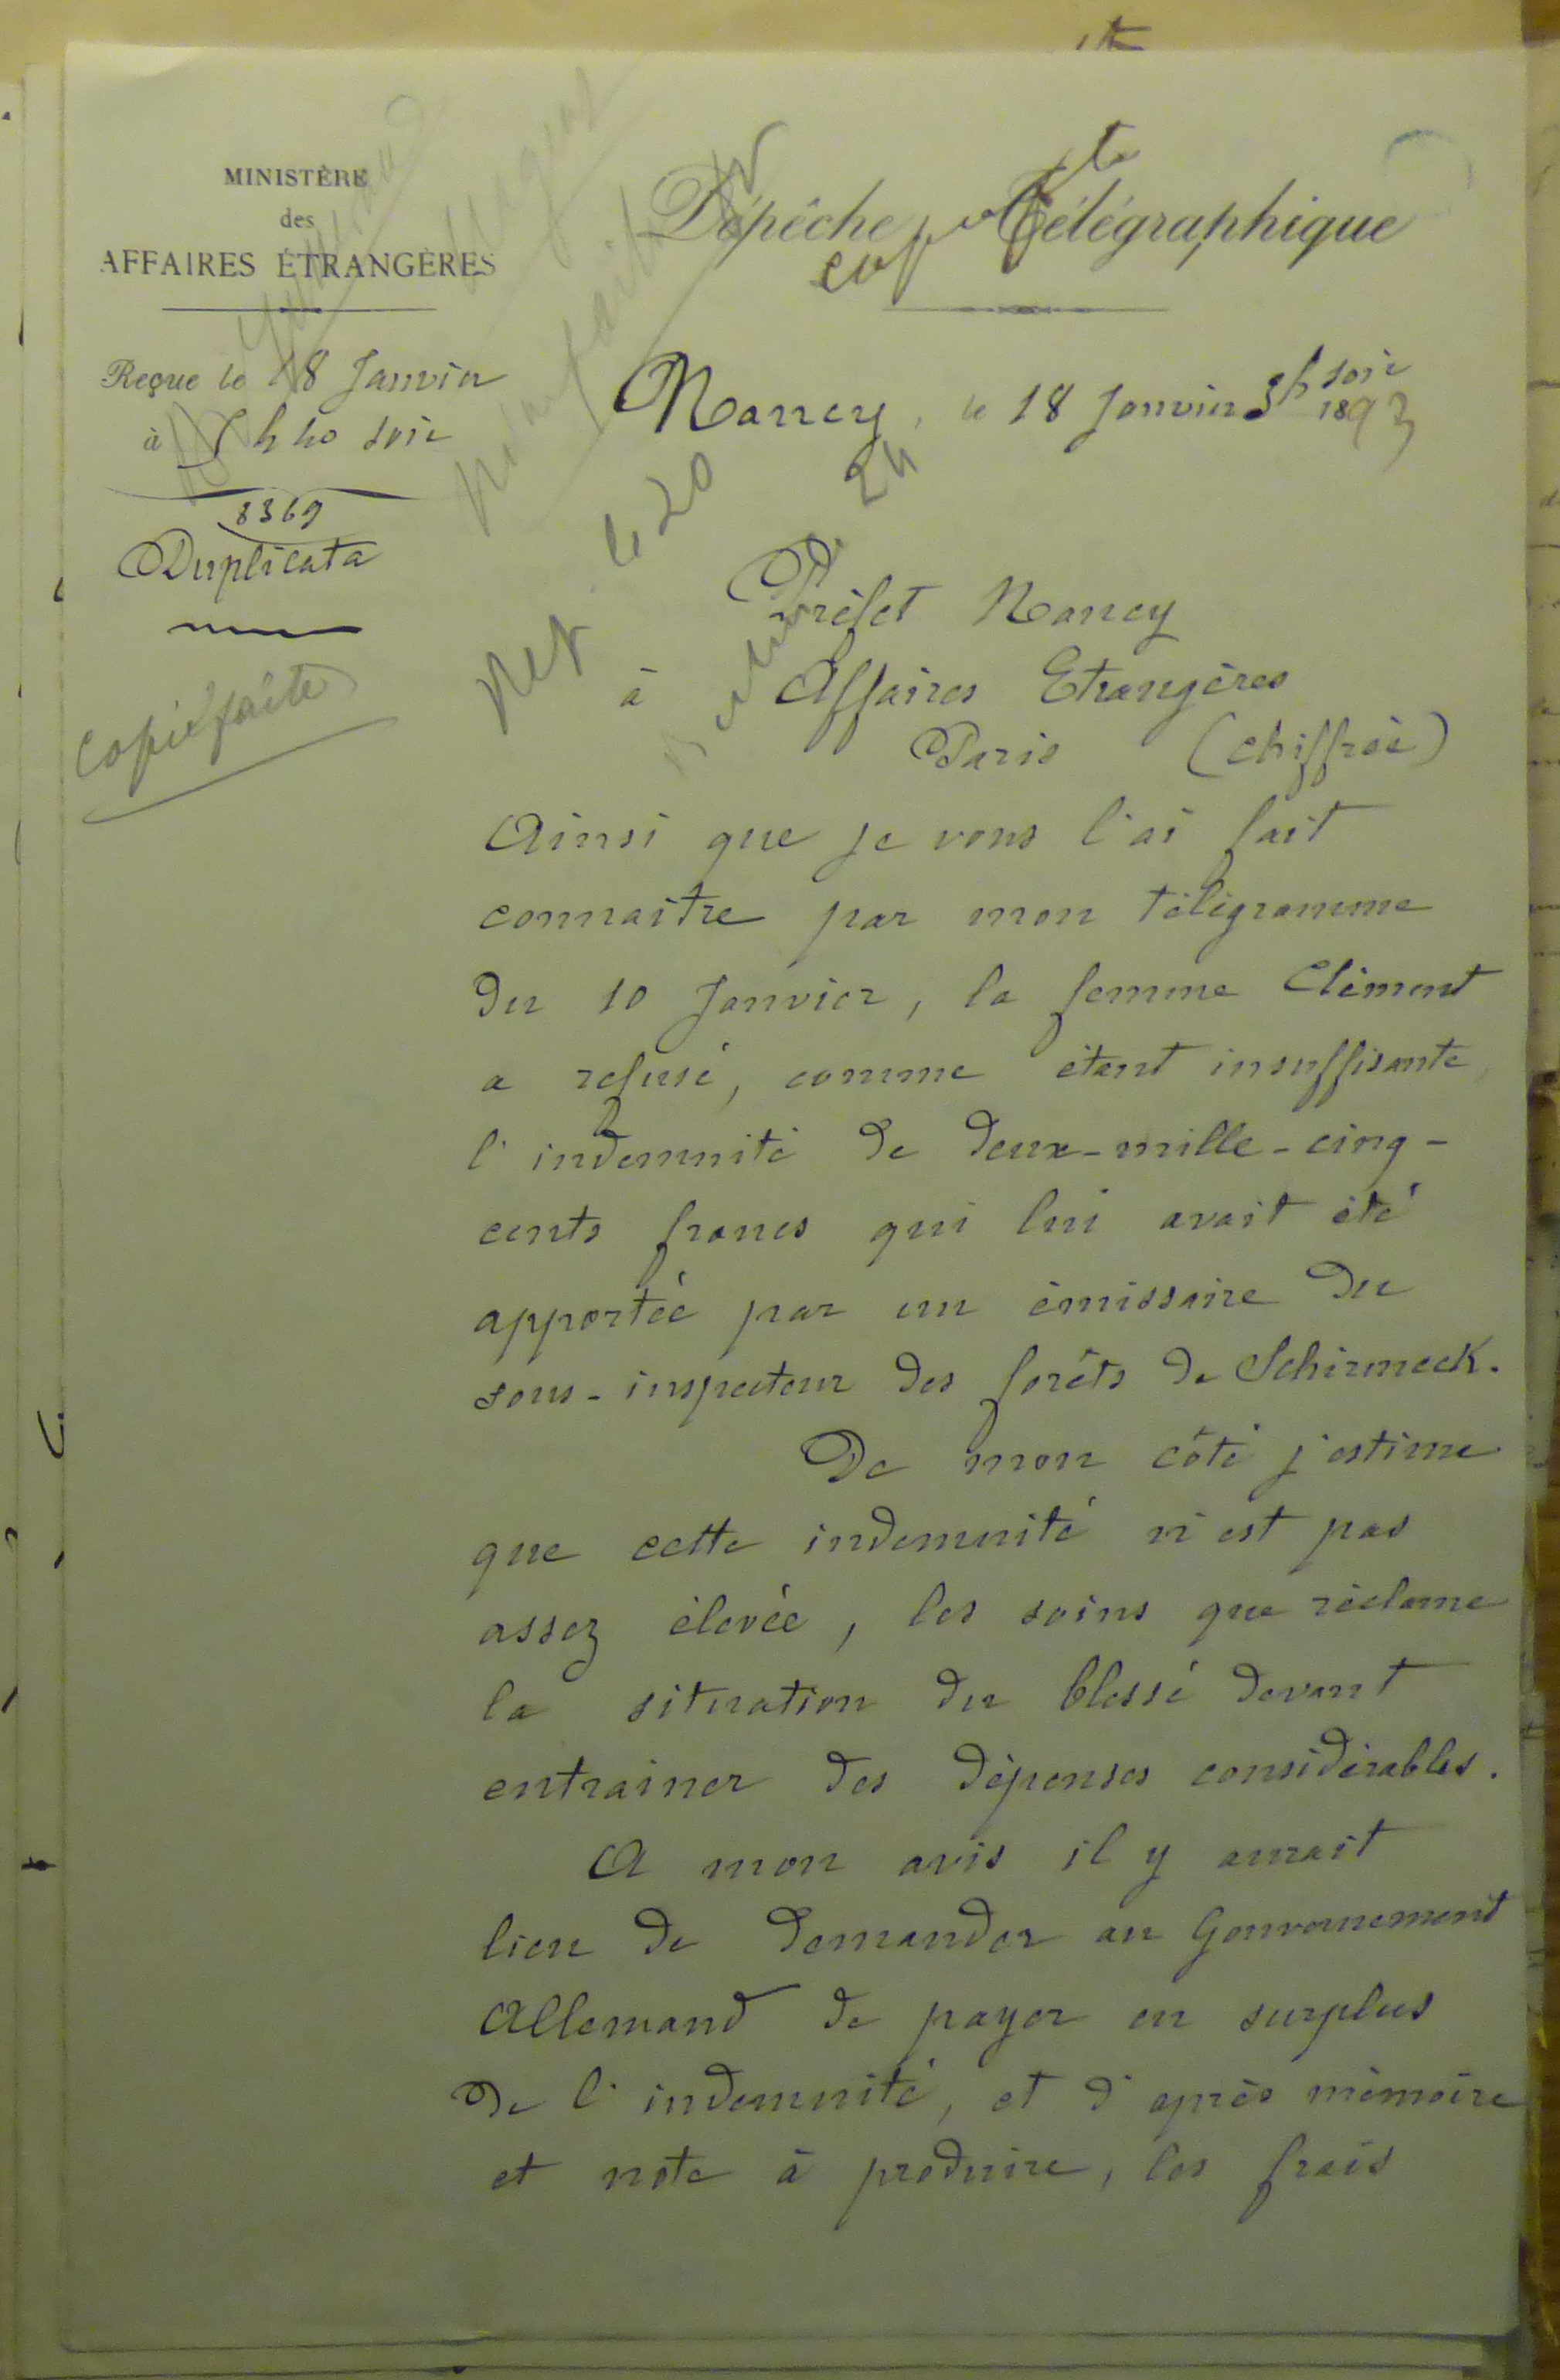 MINISTÈRE
des
AFFAIRES ÉTRANGÈRES
Reçue le 18 Janvier
à 5 h 40 soir
8369
Duplicata
Copie faite
Dépêche Télégraphique
Nancy, le 18 Janvier 3h soir 1893
le 20
24
Préfet Nancy
à Affaires Etrangères
Paris (chiffrée)
Ainsi que je vous l'ai fait
connaitre par mon télégramme
du 10 Janvier, la femme Clément
a refusé, comme étant insuffisante
l'indemnité de deux-mille-cinq-
cents francs qui lui avait été
apportée par un émissaire du
sous-inspecteur des forêts de Schirmeck.
De mon côté j'estime
que cette indemnité n'est pas
assez élevée, les soins que réclame
la situation du blessé devant
entrainer des dépenses considérables.
A mon avis il y aurait
lieu de demander au Gouvernement
Allemand de payer en surplus
de l'indemnité, et d'après mémoire
et note à produire, les frais